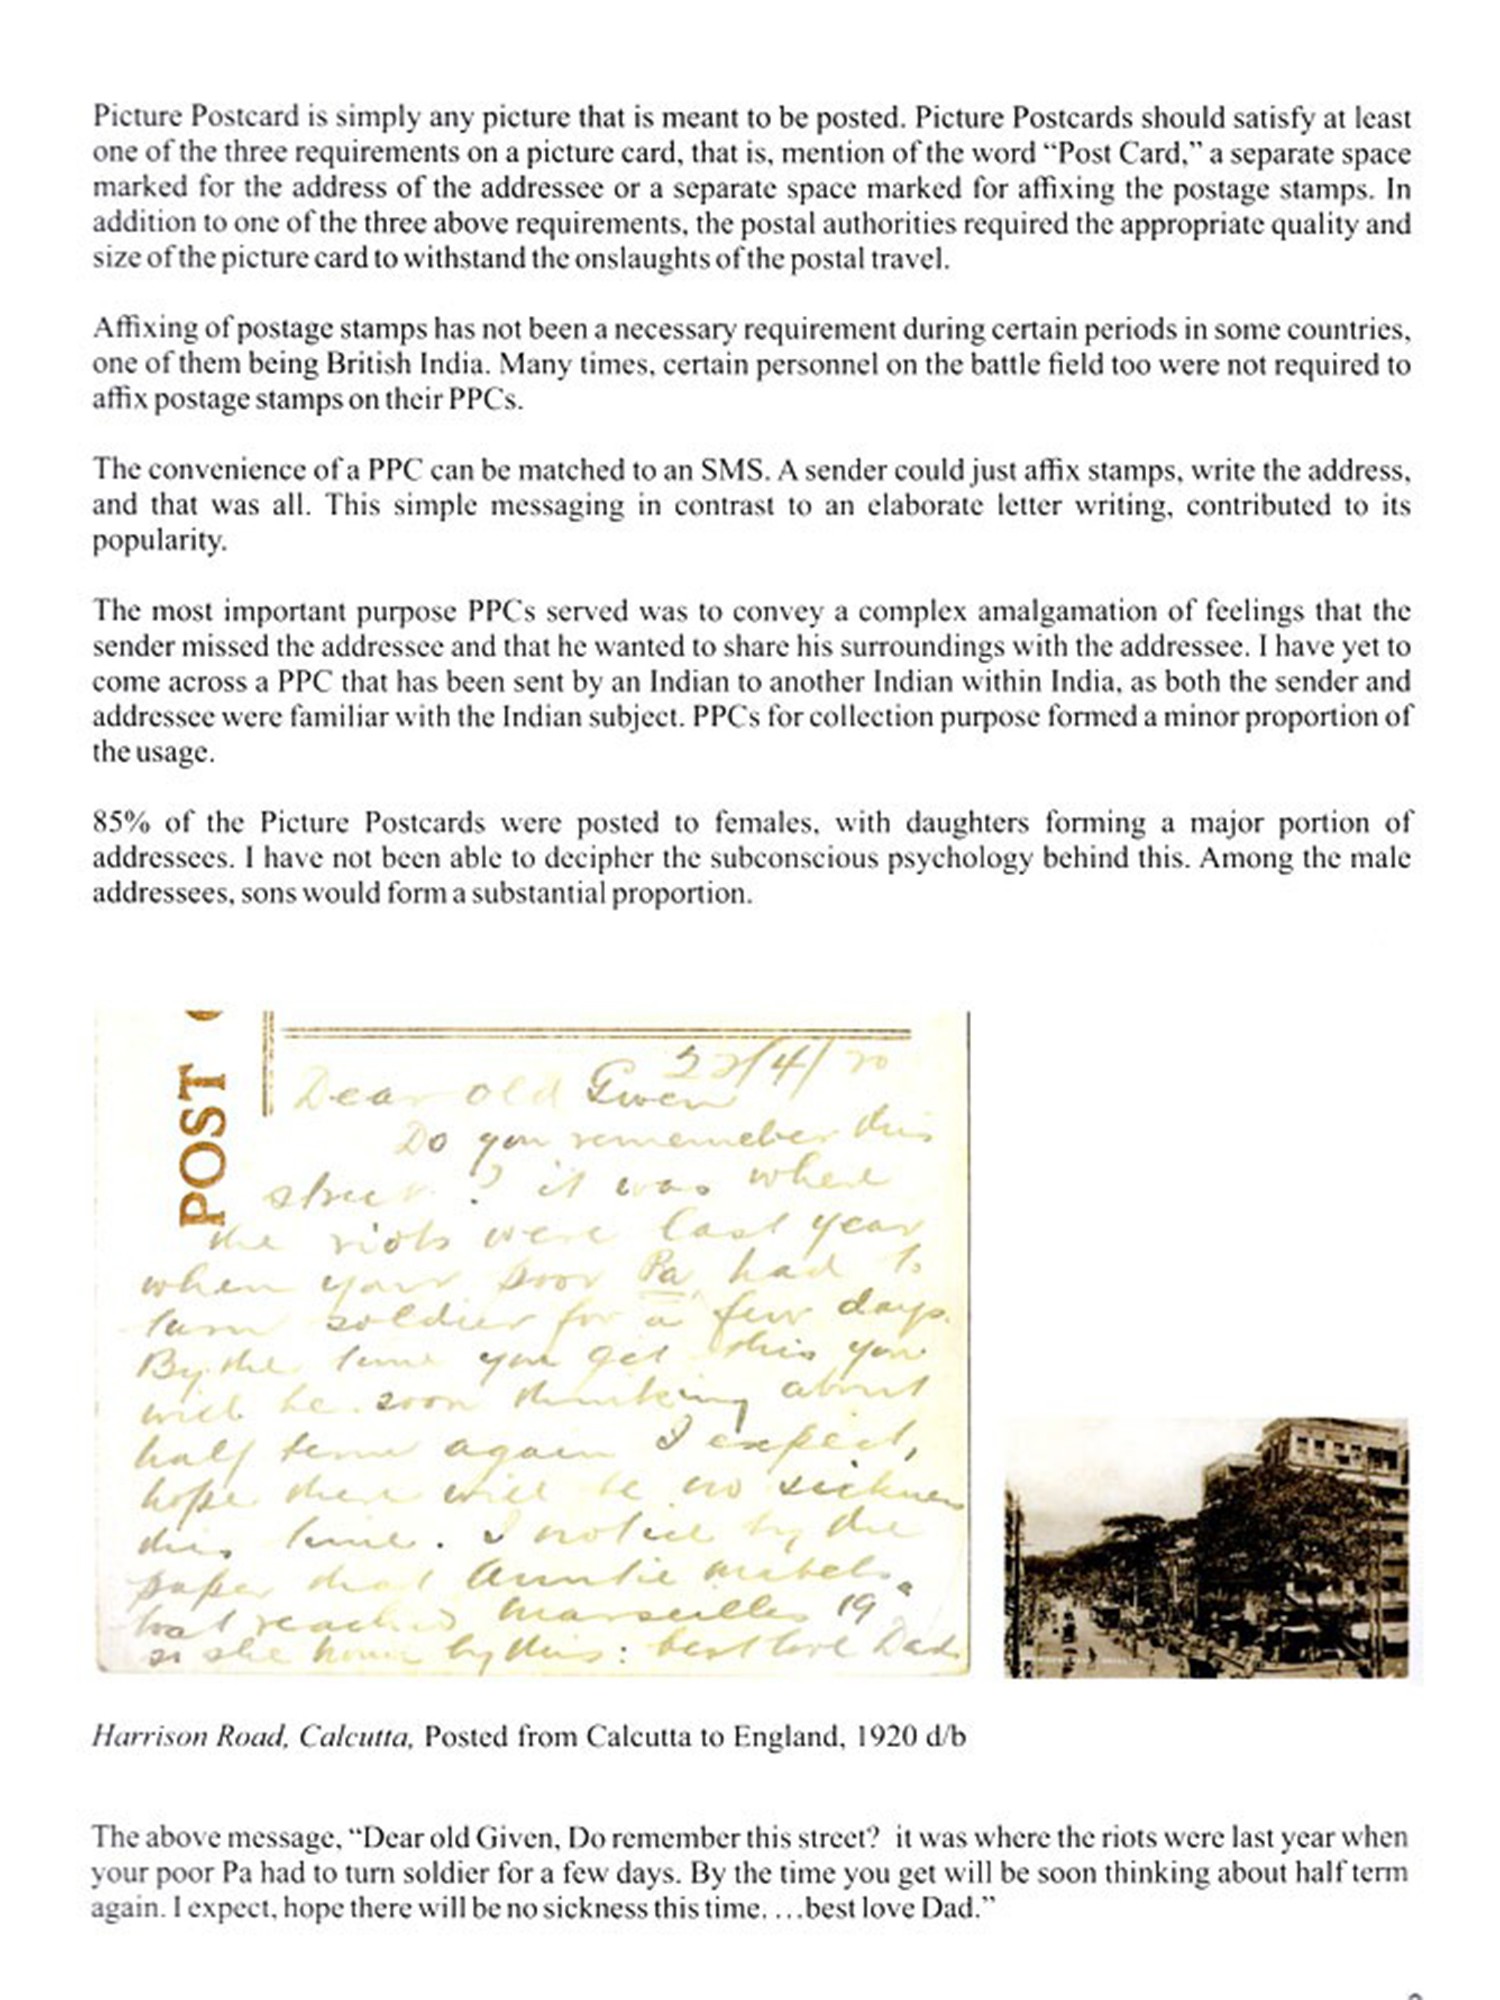 Picture Postcard is simply any picture that is meant to be posted. Picture Postcards should satisfy at least
one of the three requirements on a picture card, that is, mention of the word “Post Card,” a separate space
marked for the address of the addressee or a separate space marked for affixing the postage stamps. In
addition to one of the three above requirements, the postal authorities required the appropriate quality and
size of the picture card to withstand the onslaughts of the postal travel.
Affixing of postage stamps has not been a necessary requirement during certain periods in some countries,
one of them being British India. Many times, certain personnel on the battle field too were not required to
affix postage stamps on their PPCs.
The convenience of a PPC can be matched to an SMS. A sender could just affix stamps, write the address,
and that was all. This simple messaging in contrast to an elaborate letter writing, contributed to its
popularity.
The most important purpose PPCs served was to convey a complex amalgamation of feelings that the
sender missed the addressee and that he wanted to share his surroundings with the addressee. I have yet to
come across a PPC that has been sent by an Indian to another Indian within India, as both the sender and
addressee were familiar with the Indian subject. PPCs for collection purpose formed a minor proportion of
the usage.
85% of the Picture Postcards were posted to females, with daughters forming a major portion of
addressees. I have not been able to decipher the subconscious psychology behind this. Among the male
addressees, sons would form a substantial proportion.
POST
/4/20
Dear old Gwen
Do you rememeber this
street? it was where
the riots were last year
when your poor Pa had to
turn soldier for a few days.
By the time you get this you
will be soon thinking about
half term again I expect,
hope there will be no sickness
this time. I notice by the
paper that Auntie Mabels
boat reached Marseilles 19
so she home by this: best love Dad
Harrison Road, Calcutta, Posted from Calcutta to England, 1920 d/b
The above message, “Dear old Given, Do remember this street? it was where the riots were last year when
your poor Pa had to turn soldier for a few days. By the time you get will be soon thinking about half term
again. I expect, hope there will be no sickness this time. …best love Dad.”